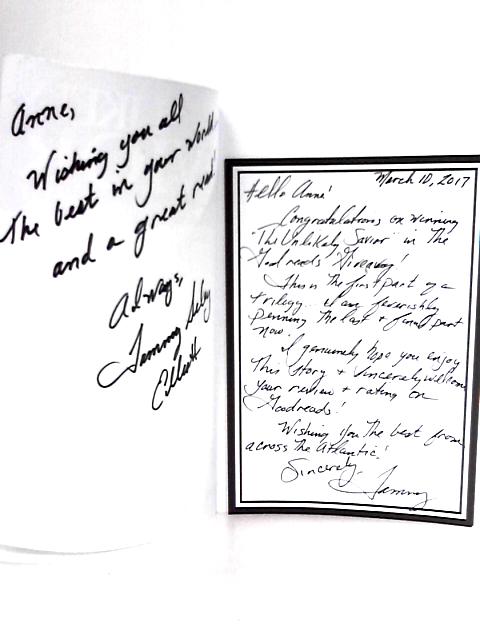 Anne,
Wishing you all
the best in your world
and a great read!
Always,
Tammy
Elliott
March 10, 2017
Hello Anne!
Congratulations on winning
"The Unlikely Savior" in the
Goodreads' Giveaway!
This is the first part of a
trilogy... I am feverishly
penning the last + final part
now!
I genuinely hope you enjoy
this story + sincerely welcome
your review + rating on
Goodreads!
Wishing you the best from
across the Atlantic!
Sincerely,
Tammy